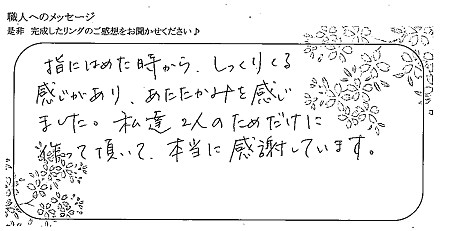 職人へのメッセージ
是非 完成したリングのご感想をお聞かせください♪
指にはめた時から、しっくりくる
感じがあり、あたたかみを感じ
ました。私達2人のためだけに
作って頂いて、本当に感謝しています。